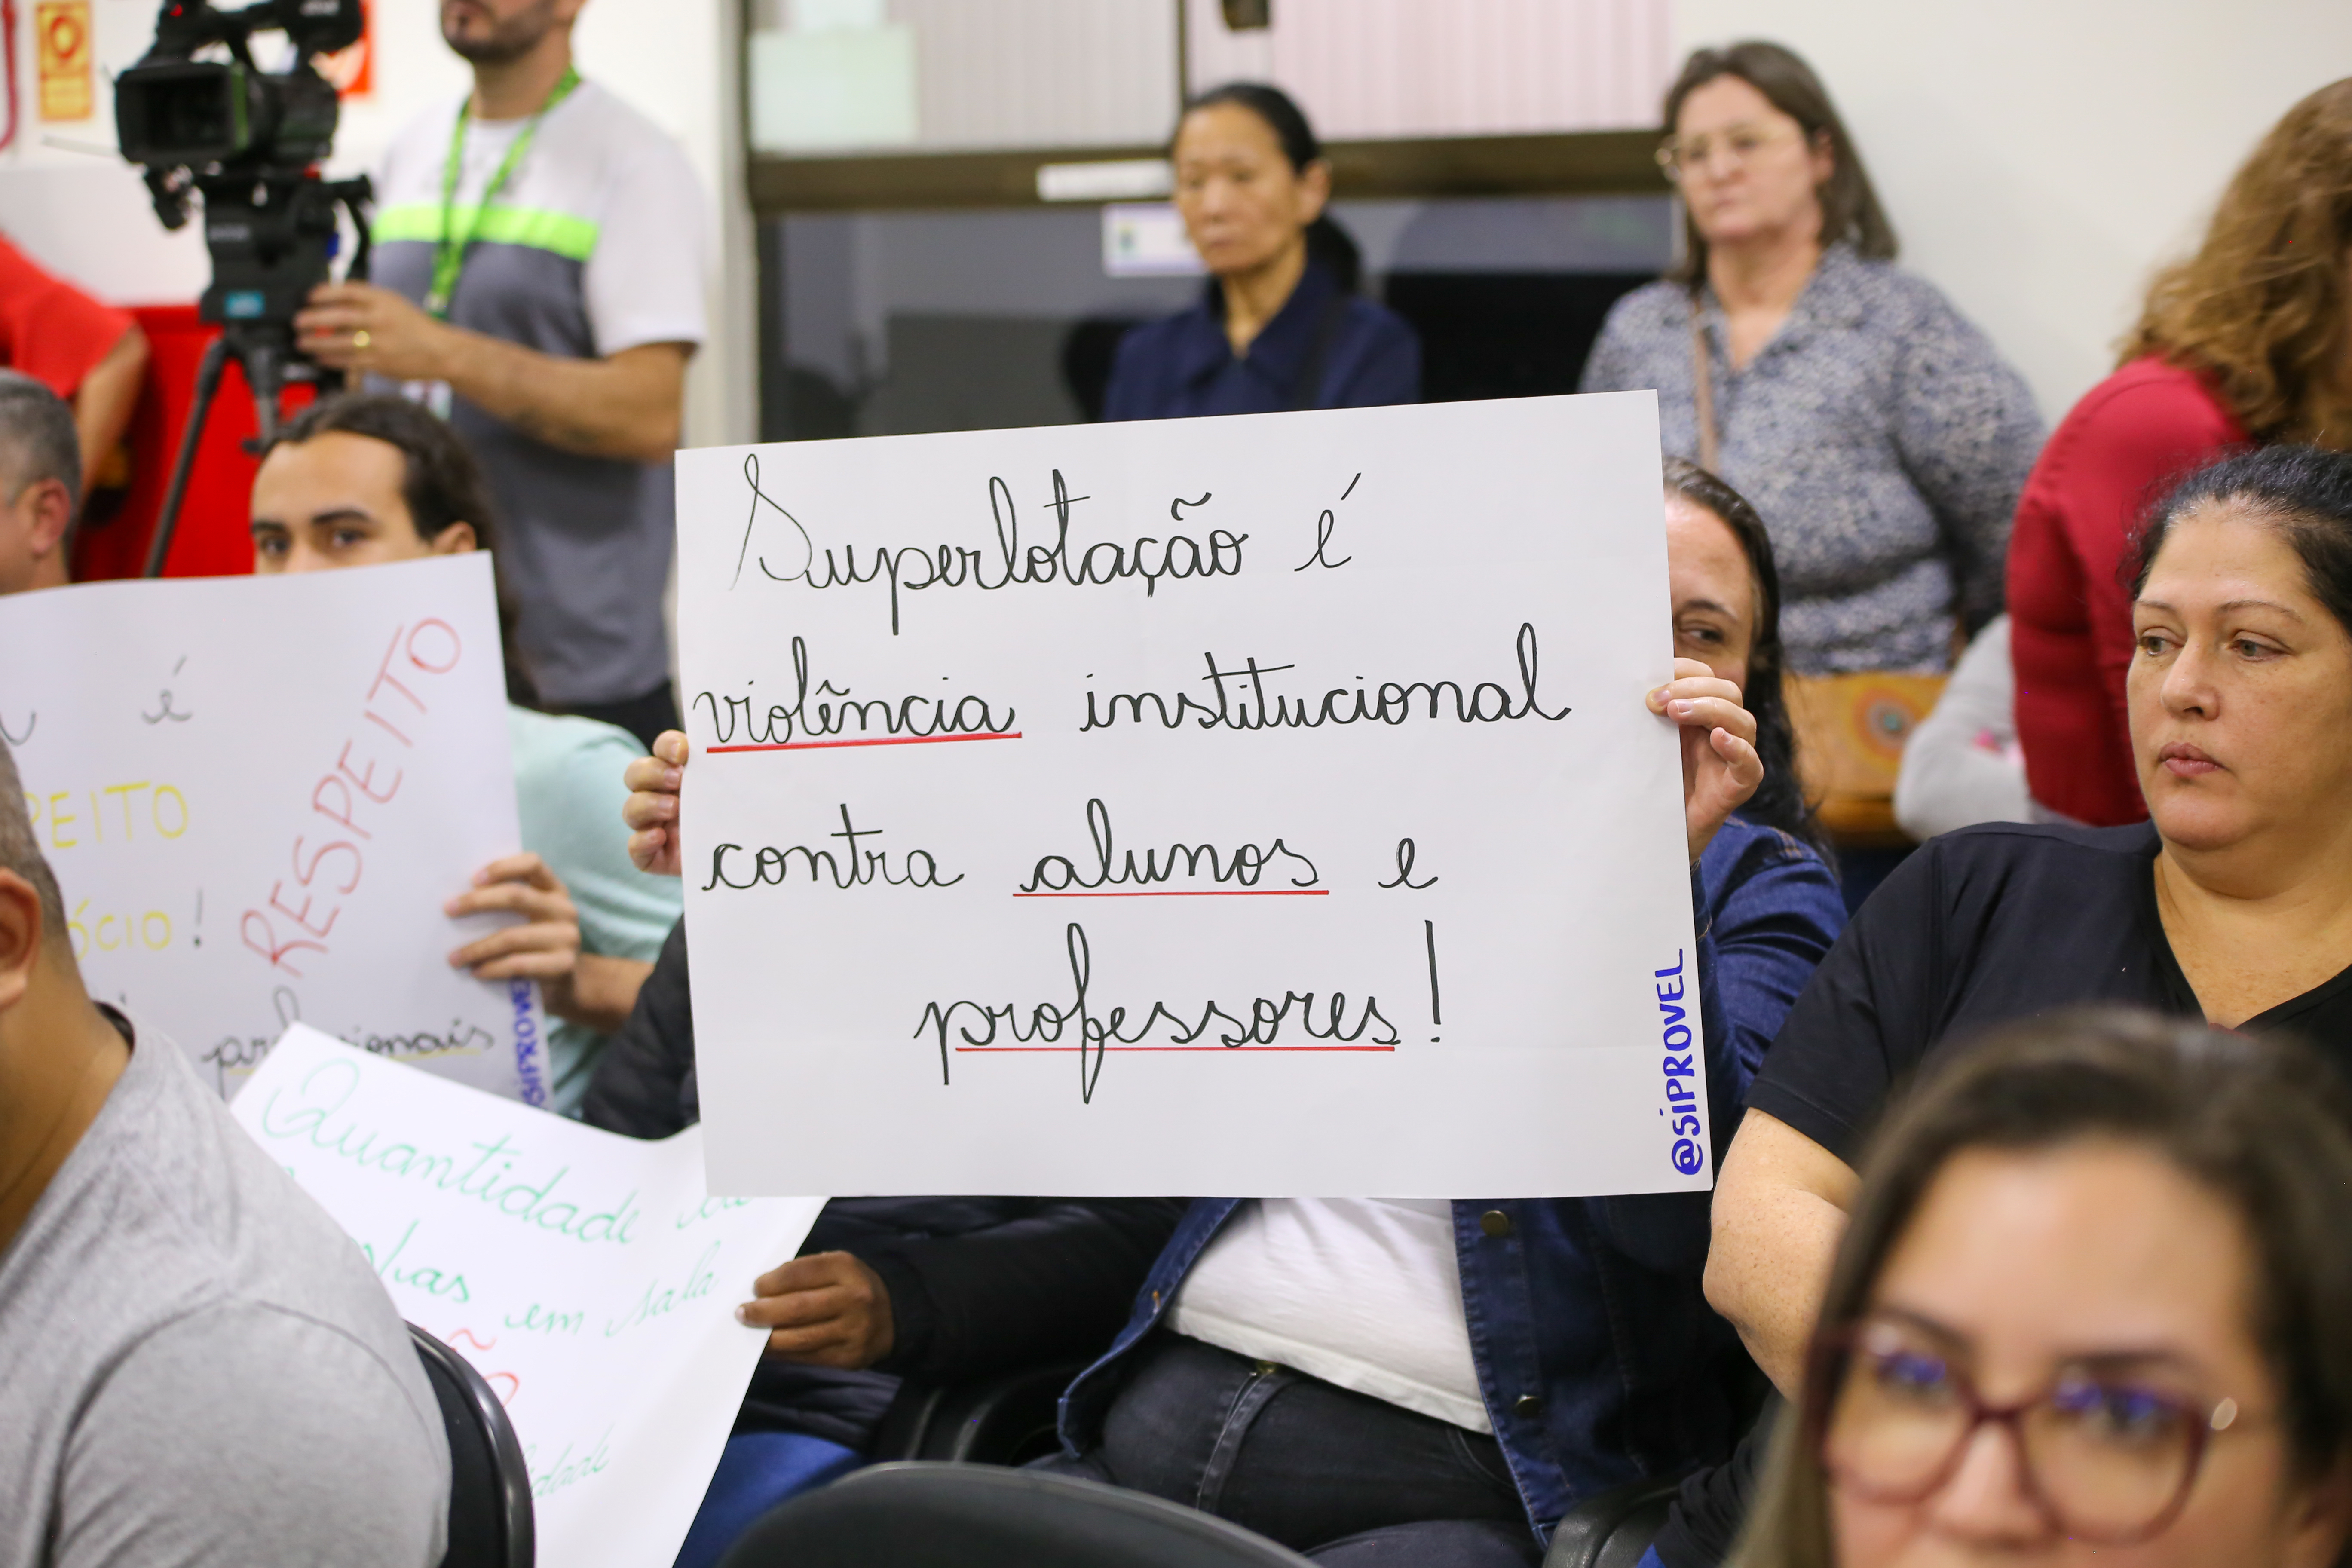 Superlotação é
violência institucional
contra alunos e
professores!
@SIPROVEL
é
RESPEITO
@SIPROVEL
Quantidade
em sala